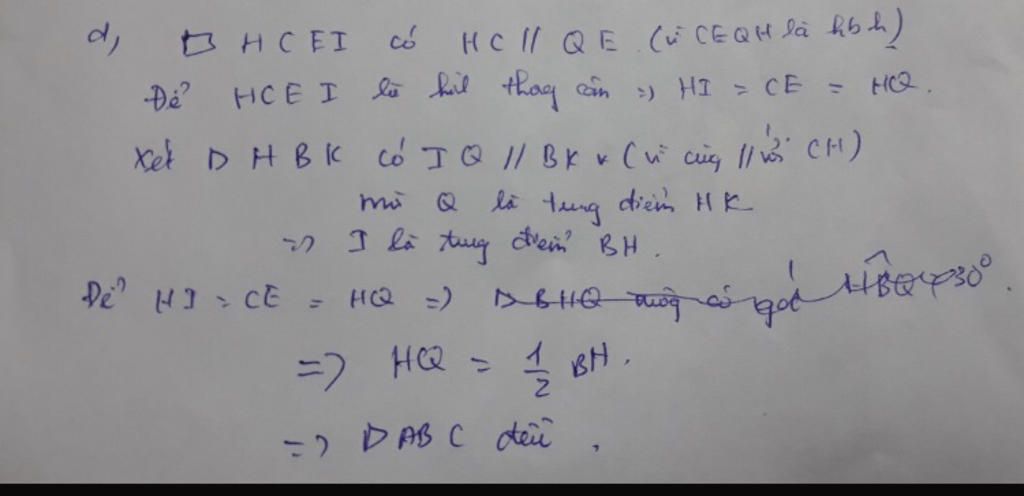 d, □ HCEI có HC // QE (vì CEQH là hbh)
Để HCEI là hil thag cân => HI = CE = HQ.
Xét Δ HBK có IQ // BK (vì cùg // với CH)
mà Q là tung điểm HK
=> I là tug điểm BH.
Để HI = CE = HQ => Δ BHQ vuôg có góc HBQ = 30°.
=> HQ = 1/2 BH.
=> Δ ABC đều.